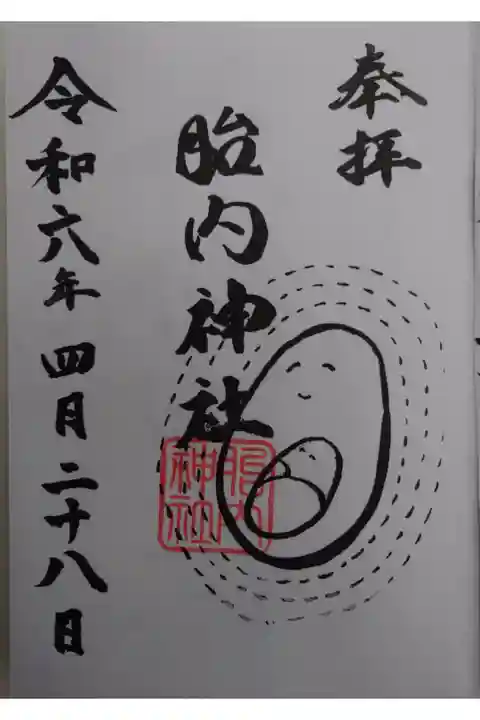 奉拝
胎内神社
胎内神社
令和六年四月二十八日